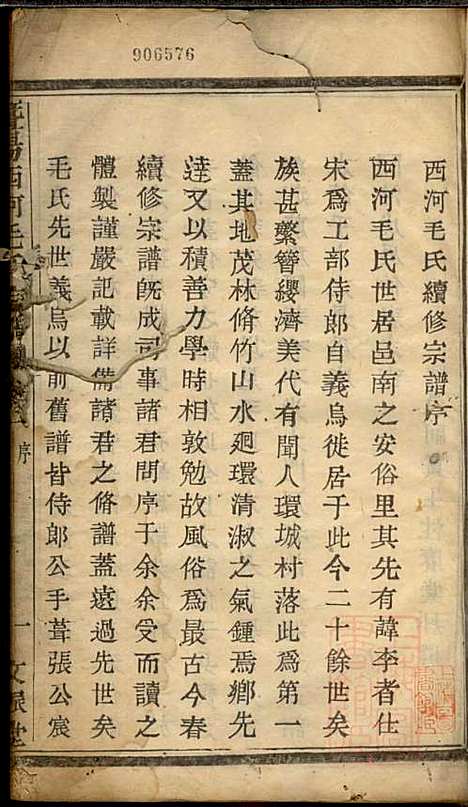 906576
西河毛氏續修宗譜序
西河毛氏世居邑南之安俗里其先有諱李者仕
宋爲工部侍郎自義烏徙居于此今二十餘世矣
族甚蘩簪纓濟美代有聞人環城村落此爲第一
蓋其地茂林脩竹山水廻環清淑之氣鍾焉鄉先
逹又以積善力學時相敦勉故風俗爲最古今春
續修宗譜旣成司事諸君問序于余余受而讀之
體製謹嚴記載詳備諸君之脩譜蓋遠過先世矣
毛氏先世義烏以前舊譜皆侍郎公手葺張公宸
西河毛氏
序
一